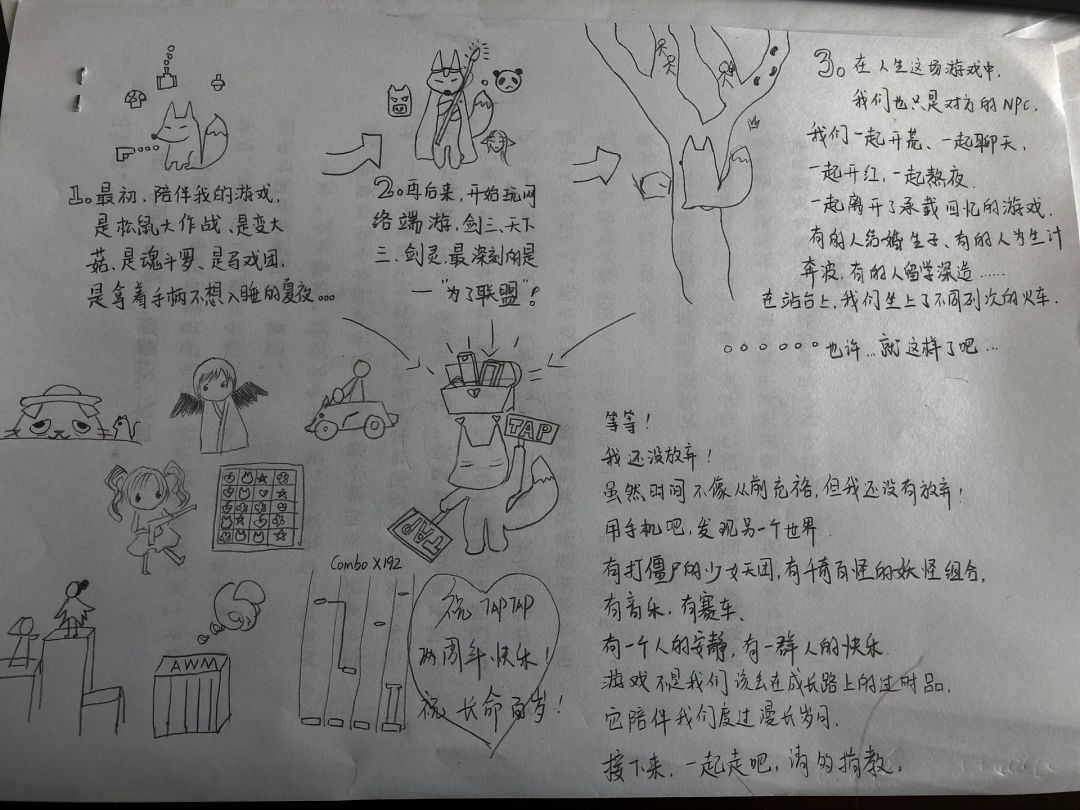 1。最初,陪伴我的游戏,
是松鼠大作战、是变大
菇、是魂斗罗、是马戏团,
是拿着手柄不想入睡的夏夜...
2。再后来,开始玩网
络端游,剑三、天下
三、剑灵,最深刻的是
—"为了联盟"!
3。在人生这场游戏中,
我们也只是对方的NPC,
我们一起开荒、一起聊天,
一起开红,一起熬夜
一起离开了承载回忆的游戏.
有的人结婚生子、有的人为生计
奔波,有的人留学深造......
在站台上,我们坐上了不同列次的火车.
。。。。。。也许...就这样了吧...
TAP
TAP
等等!
我还没放弃!
虽然时间不像从前充裕,但我还没有放弃!
用手机吧,发现另一个世界.
有打僵尸的少女天团,有千奇百怪的妖怪组合,
有音乐,有赛车、
有一个人的安静,有一群人的快乐
游戏不是我们该丢在成长路上的过时品,
它陪伴我们度过漫长岁月.
接下来,一起走吧,请多指教。
Combo X192
AWM
祝TAPTAP
两周年快乐!
祝 长命百岁!